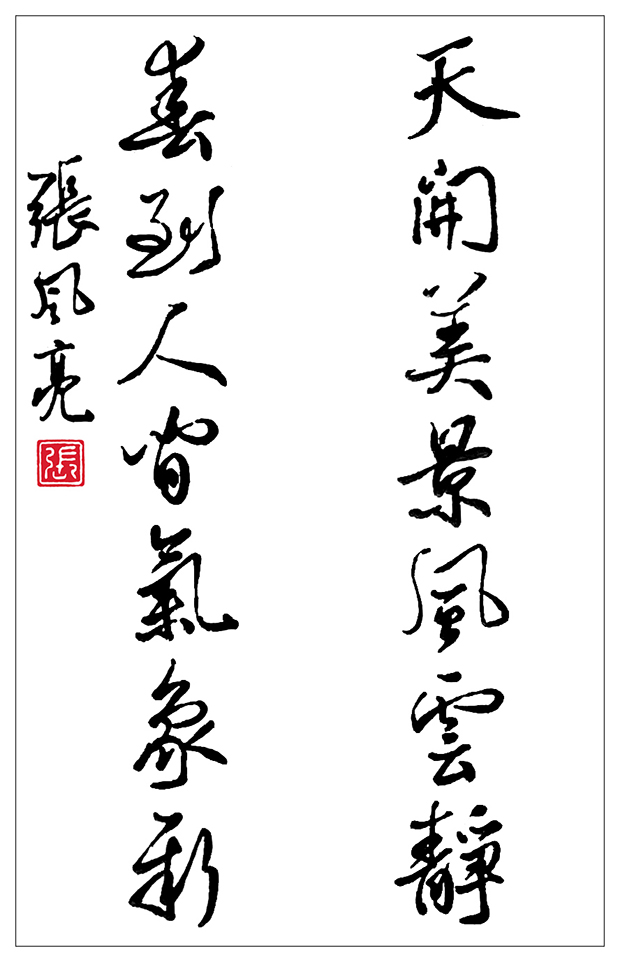 天開美景風雲靜
春到人間氣象新
張風亮
張